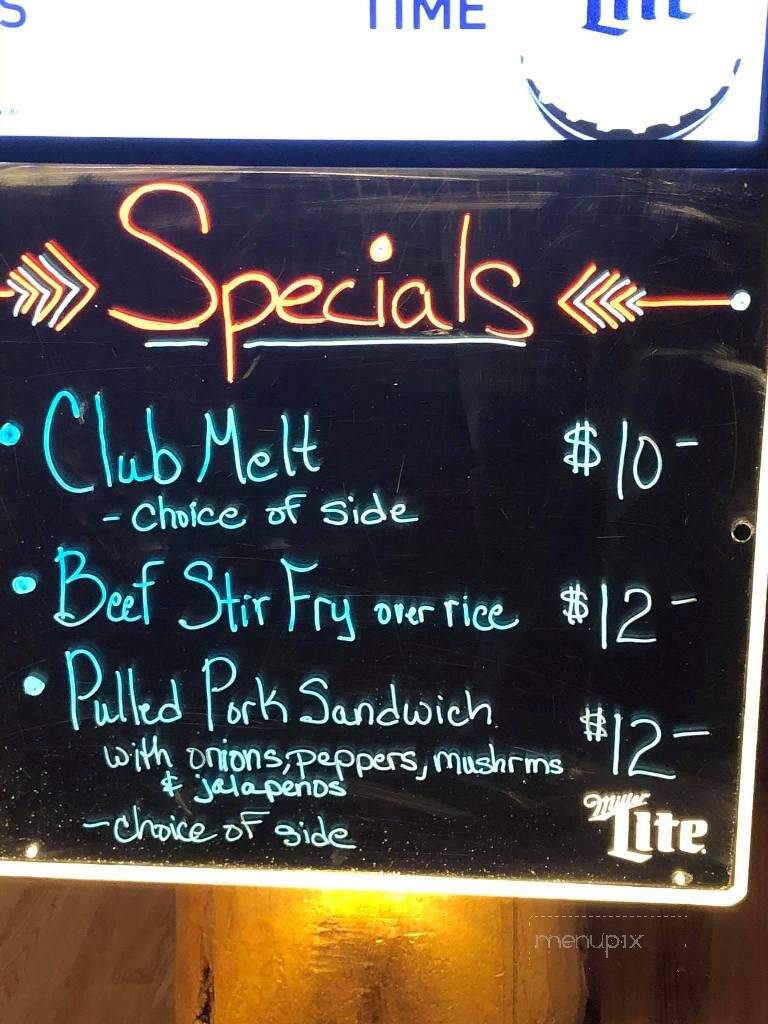 S TIME Lite
Specials
• Club Melt $10-
- choice of side
• Beef Stir Fry over rice $12-
• Pulled Pork Sandwich $12-
with onions, peppers, mushrms
& jalapenos
- choice of side
Miller
Lite
menupix